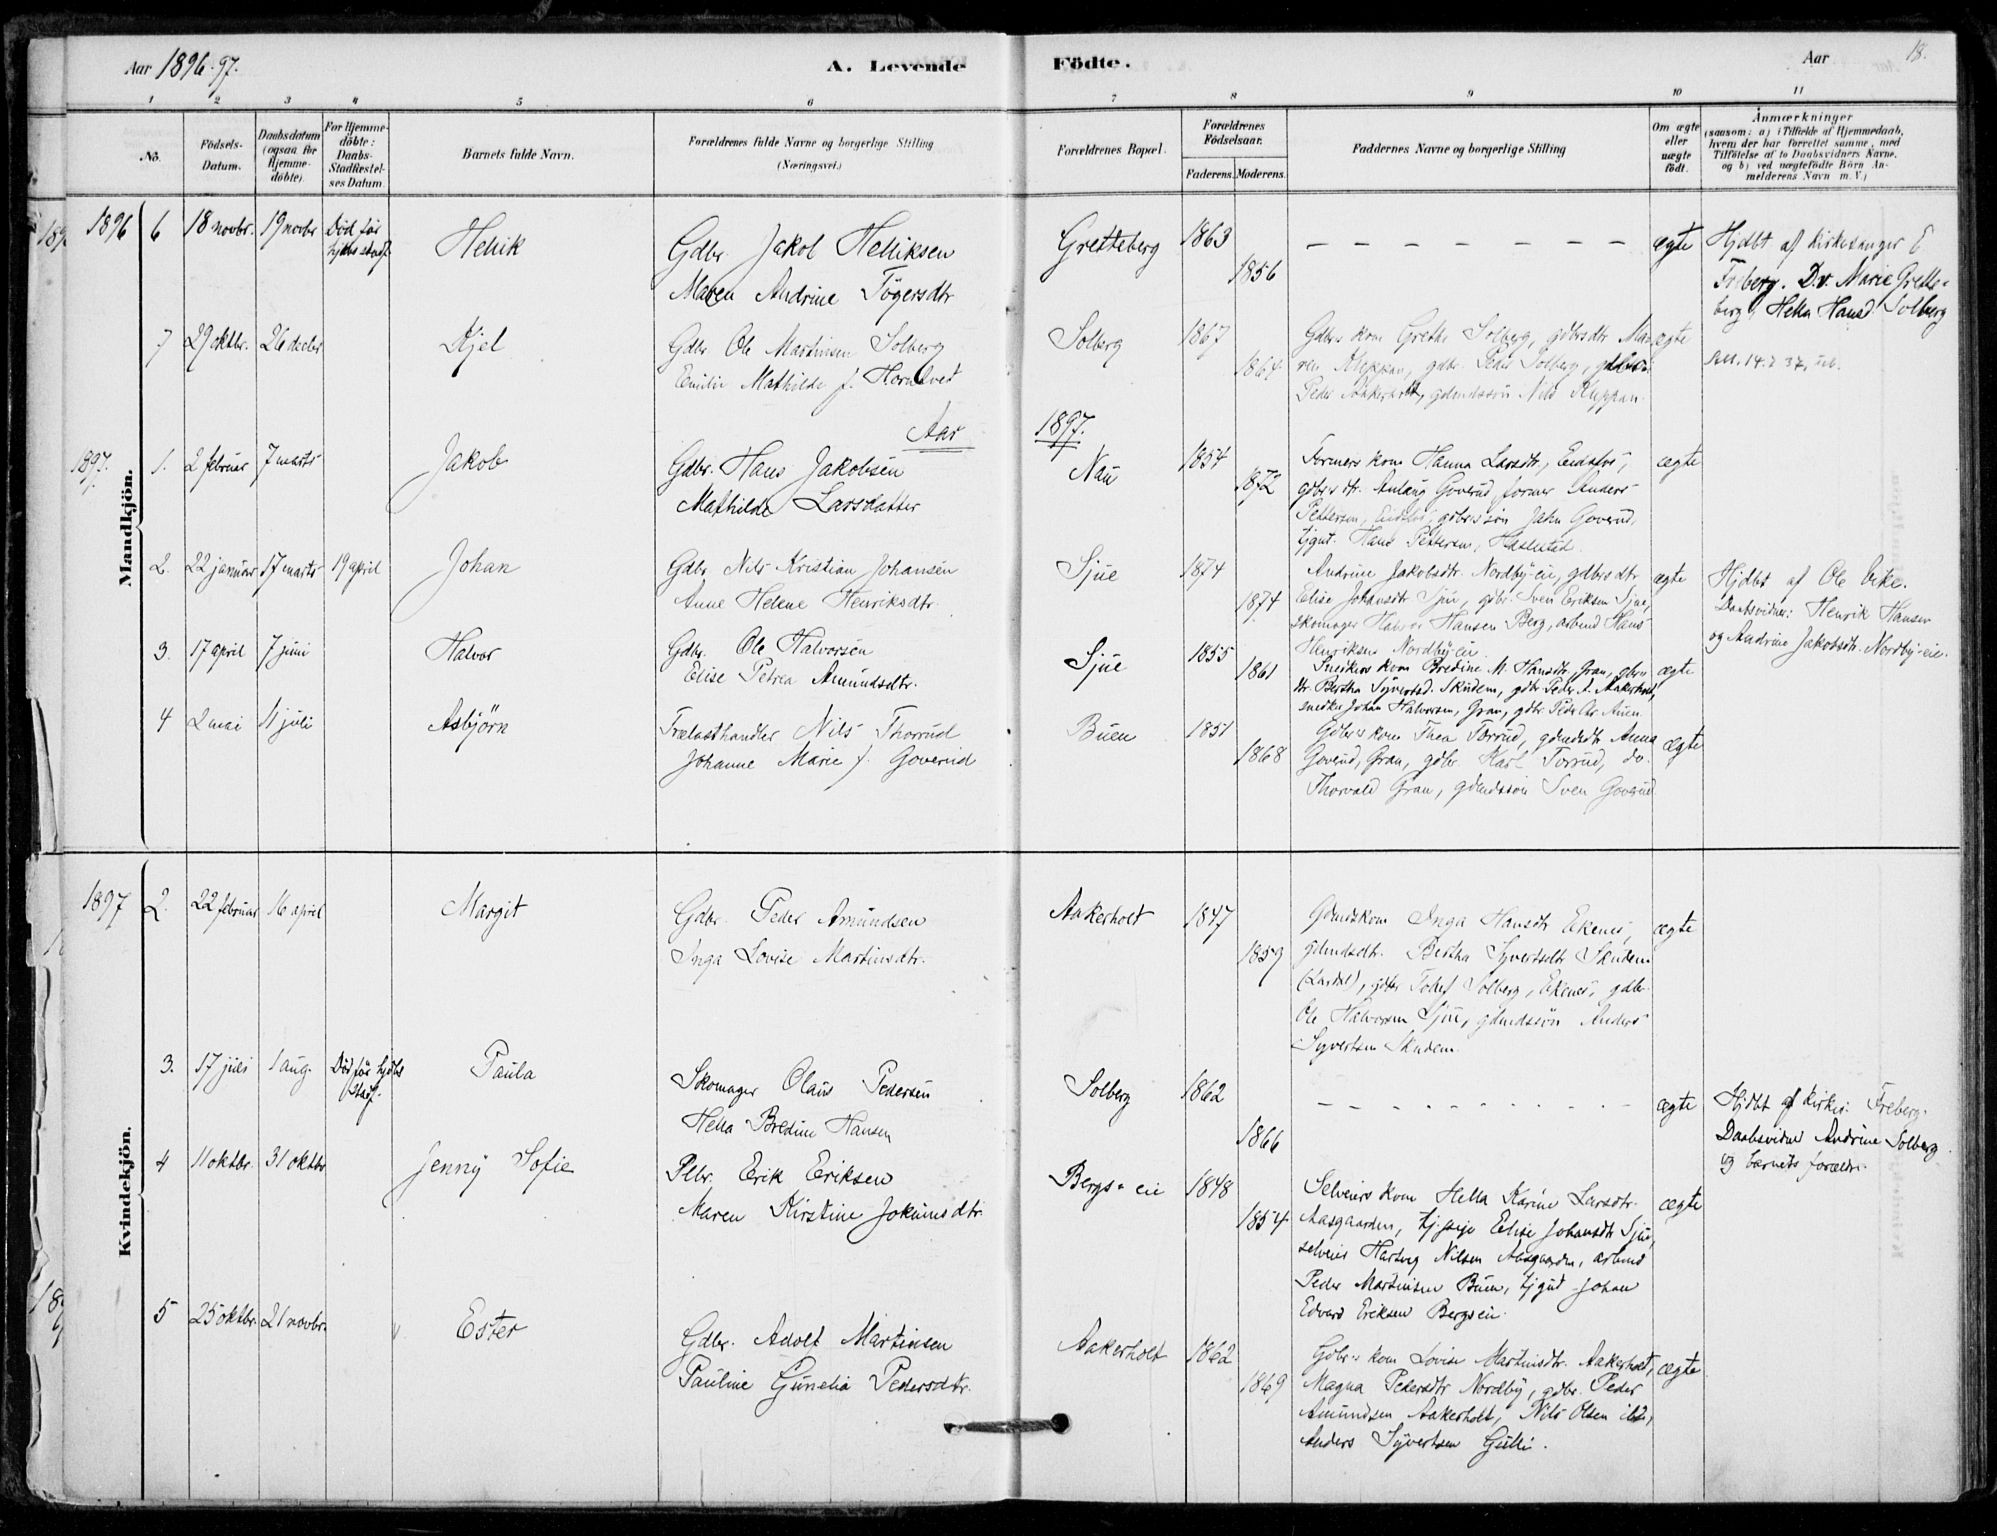 Aar 1896-97. A. Levende Födte. Aar 18.
1 2 3 4 5 6 7 8 9 10 11
No. Födsels-Datum. Daabsdatum (ogsaa for Hjemmedöbte). For Hjemmedöbte: Daabs-Stadfæstelses Datum Barnets fulde Navn. Forældrenes fulde Navne og borgerlige Stilling (Næringsvei.) Forældrenes Bopæl. Forældrenes Födselsaar. Faderens. Moderens. Faddernes Navne og borgerlige Stilling Om ægte eller uægte födt. Anmærkninger (saasom: a) i Tilfælde af Hjemmedaab, hvem der har forrettet samme, med Tilföielse af to Daabsvidners Navne, og b) ved uægtefödte Börn Anmelderens Navn m. V.)
Mandkjön.
1896 6 18 novbr. 19 novbr Död för hjdbs stadf. Helik Gdbr. Jakob Heliksen Gretteberg 1863 ægte Hjdbt af kirkesanger E.
Maren Andrine Tögersdtr 1856 Freberg. D.v. Marie Grette-
berg, Hella Hansd. Solberg
7 29 oktbr. 26 decbr Kjel Gdbr. Ole Martinsen Solberg Solberg 1867 Gdbrs kom Grethe Solberg, gdbrsdtr Ma- ægte
Emilie Mathilde f. Horntvet 1864 ren Kleppan, gdbr. Peder Solberg,
Peder Aakerholt, gdmdssön Nils Kleppan
Aar 1897.
1897. 1. 2 februar 7 marts Jakob Gdbr. Hans Jakobsen Nau 1854 Formers kom Hanna Larsdtr., Eidsfos, ægte
Mathilde Larsdatter 1872 gdbrs dtr. Anlaug Goverud, former Anders
Pettersen, Eidsfos, gdbrs sön Jahn Goverud,
tjgut. Hans Pettersen, Haslestad.
2. 22 januar 17 marts 19 april Johan Gdbr. Nils Kristian Johansen Sjue 1874 Andrine Jakobsdtr. Nordby-eie, gdbrsdtr ægte Hjdbt af Ole Eike.
Anne Helene Henriksdtr. 1874 Elise Johansdtr Sjue, gdbr. Sven Eriksen Sjue, Daabsvidner: Henrik Hansen
skomager Halvor Hansen Berg, arbmd Hans og Andrine Jakobsdtr. Nordby-eie.
Henriksen Nordby-eie.
3. 17 april 7 juni Halvor Gdbr. Ole Halvorsen Sjue 1855 Snedkers kom Bredine M. Hansdtr, Gran, gbrs ægte
Elise Petrea Amundsdtr. 1861 dtr. Bertha Syvertsd. Skudem, gdbr Peder A. Aakerholt,
snedker Johan Halvorsen, Gran, gdbr.
4 2 mai 11 juli Asbjörn Trælasthandler Nils Thorrud Buen 1851 Gdbrs kom Thea Torrud, gdmdsdtr Anna ægte
Johanne Marie f. Goverud 1868 Goverud, Gran, gdbr Karl Torrud, do.
Thorvald Gran, gdmdssön Sven Goverud
Kvindekjön.
1897 2. 22 februar 16 april Margit Gdbr. Peder Amundsen Aakerholt 1847 Gdmdskom Inga Hansdtr Ekenes, ægte
Inga Lovise Martinsdtr. 1859 gdmdsdtr. Bertha Syvertsdtr Skudem
(Lardal), gdbr Tolef Solberg, Ekenes, gdbr.
Ole Halvorsen Sjue, gdmdssön Anders
Syvertsen Skudem.
3. 17 juli 1 aug. Död för hjdbs stadf. Paula Skomager Olaus Pedersen Solberg 1862 ægte Hjdbt af kirkes. Freberg.
Hella Bredine Hansen 1866 Daabsvidner Andrine Solberg
og barnets forældre.
4 11 oktbr. 31 oktbr Jenny Sofie Plbr. Erik Eriksen Bergs-eie 1848 Selveiers kom Hella Karine Larsdtr. ægte
Maren Kirstine Jokumsdtr. 1854 Aasgaarden, tj.pige Elise Johansdtr Sjue,
selveier Hartvig Nilsen Aasgaarden, arbmd
Peder Martinsen Buen, tjgut Johan
Edvard Eriksen Bergseie.
5 25 oktbr. 21 novbr. Ester Gdbr. Adolf Martinsen Aakerholt 1862 Gdbrs kom Lovise Martinsdtr. Aakerholt, ægte
Pauline Gunelia Pedersdtr. 1869 Magna Pedersdtr Nordby, gdbr. Peder
Amundsen Aakerholt, Nils Olsen ibd.,
Anders Syvertsen Gulli.